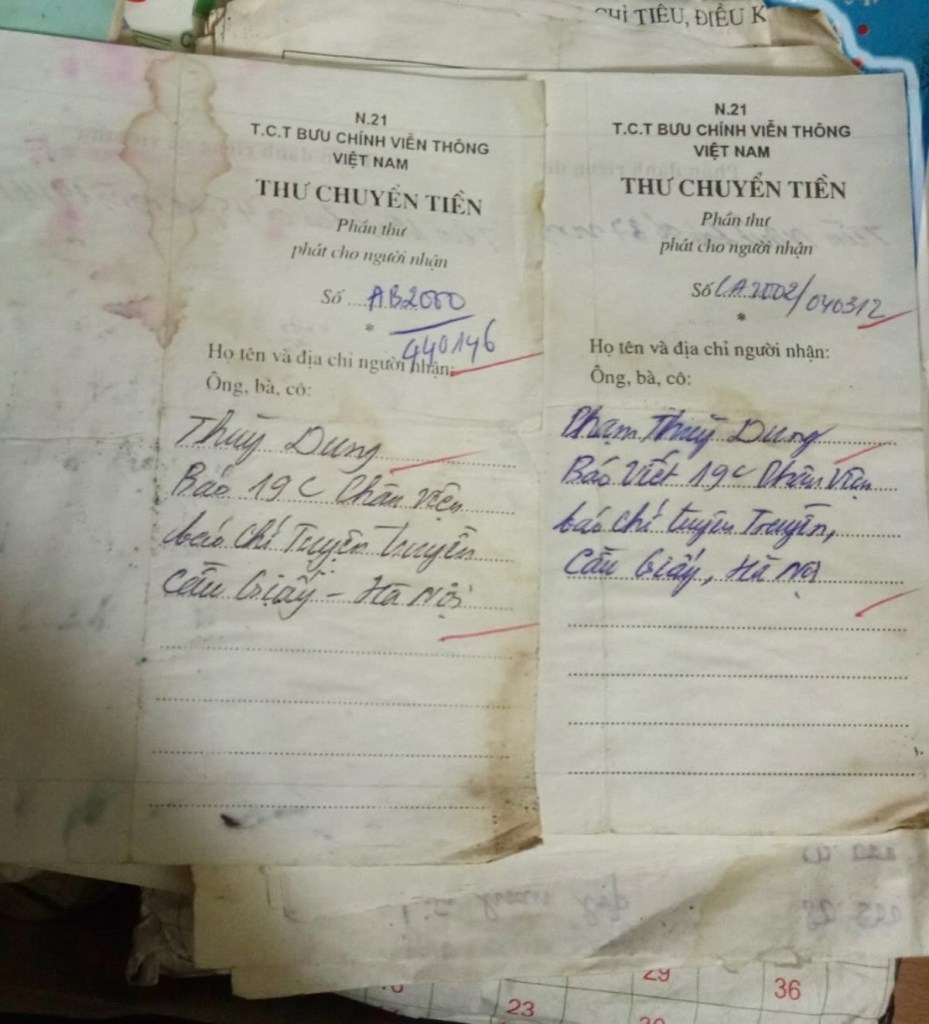 CHỈ TIÊU, ĐIỀU K
N.21
T.C.T BƯU CHÍNH VIỄN THÔNG
VIỆT NAM
THƯ CHUYỂN TIỀN
Phần thư
phát cho người nhận
Số AB2000
440146
*
Họ tên và địa chỉ người nhận:
Ông, bà, cô:
Thuỳ Dung
Báo 19C Phân Viện
báo chí Tuyên truyền
Cầu Giấy - Hà Nội
N.21
T.C.T BƯU CHÍNH VIỄN THÔNG
VIỆT NAM
THƯ CHUYỂN TIỀN
Phần thư
phát cho người nhận
Số CA2002/040312
*
Họ tên và địa chỉ người nhận:
Ông, bà, cô:
Phạm Thuỳ Dung
Báo Viết 19C Phân Viện
báo chí tuyên Truyền,
Cầu Giấy, Hà Nội
29
23
36